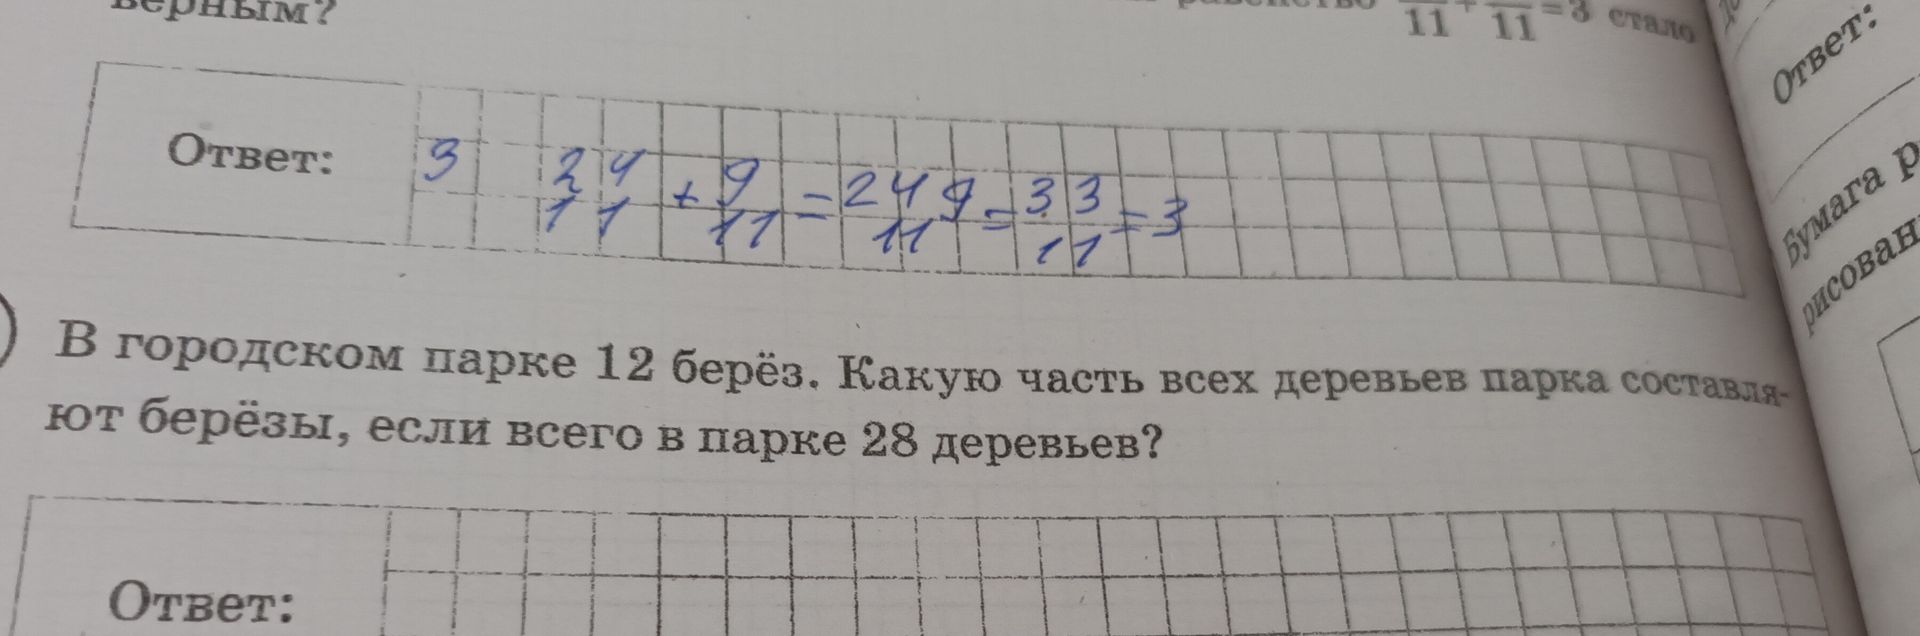 верным?
равенство 11 + 11 = 3 стало
Ответ: 3 24/11 + 9/11 = 24 9/11 = 33/11 = 3
В городском парке 12 берёз. Какую часть всех деревьев парка составля-
ют берёзы, если всего в парке 28 деревьев?
Ответ:
Ответ:
Бумага
рисован